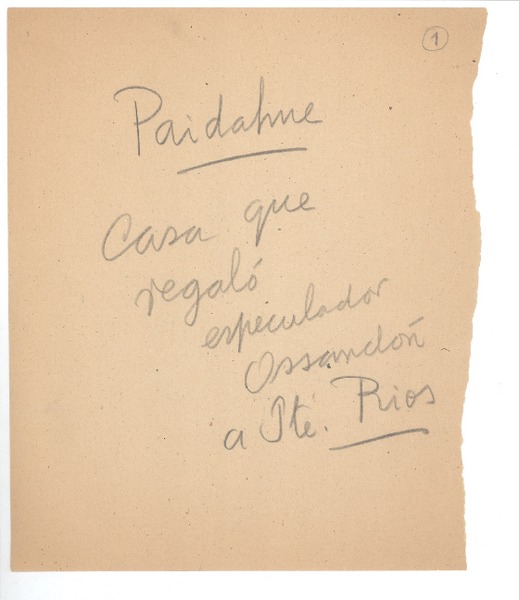 1
Paidahue
Casa que
regaló
especulador
Ossandoń
a Pte. Rios